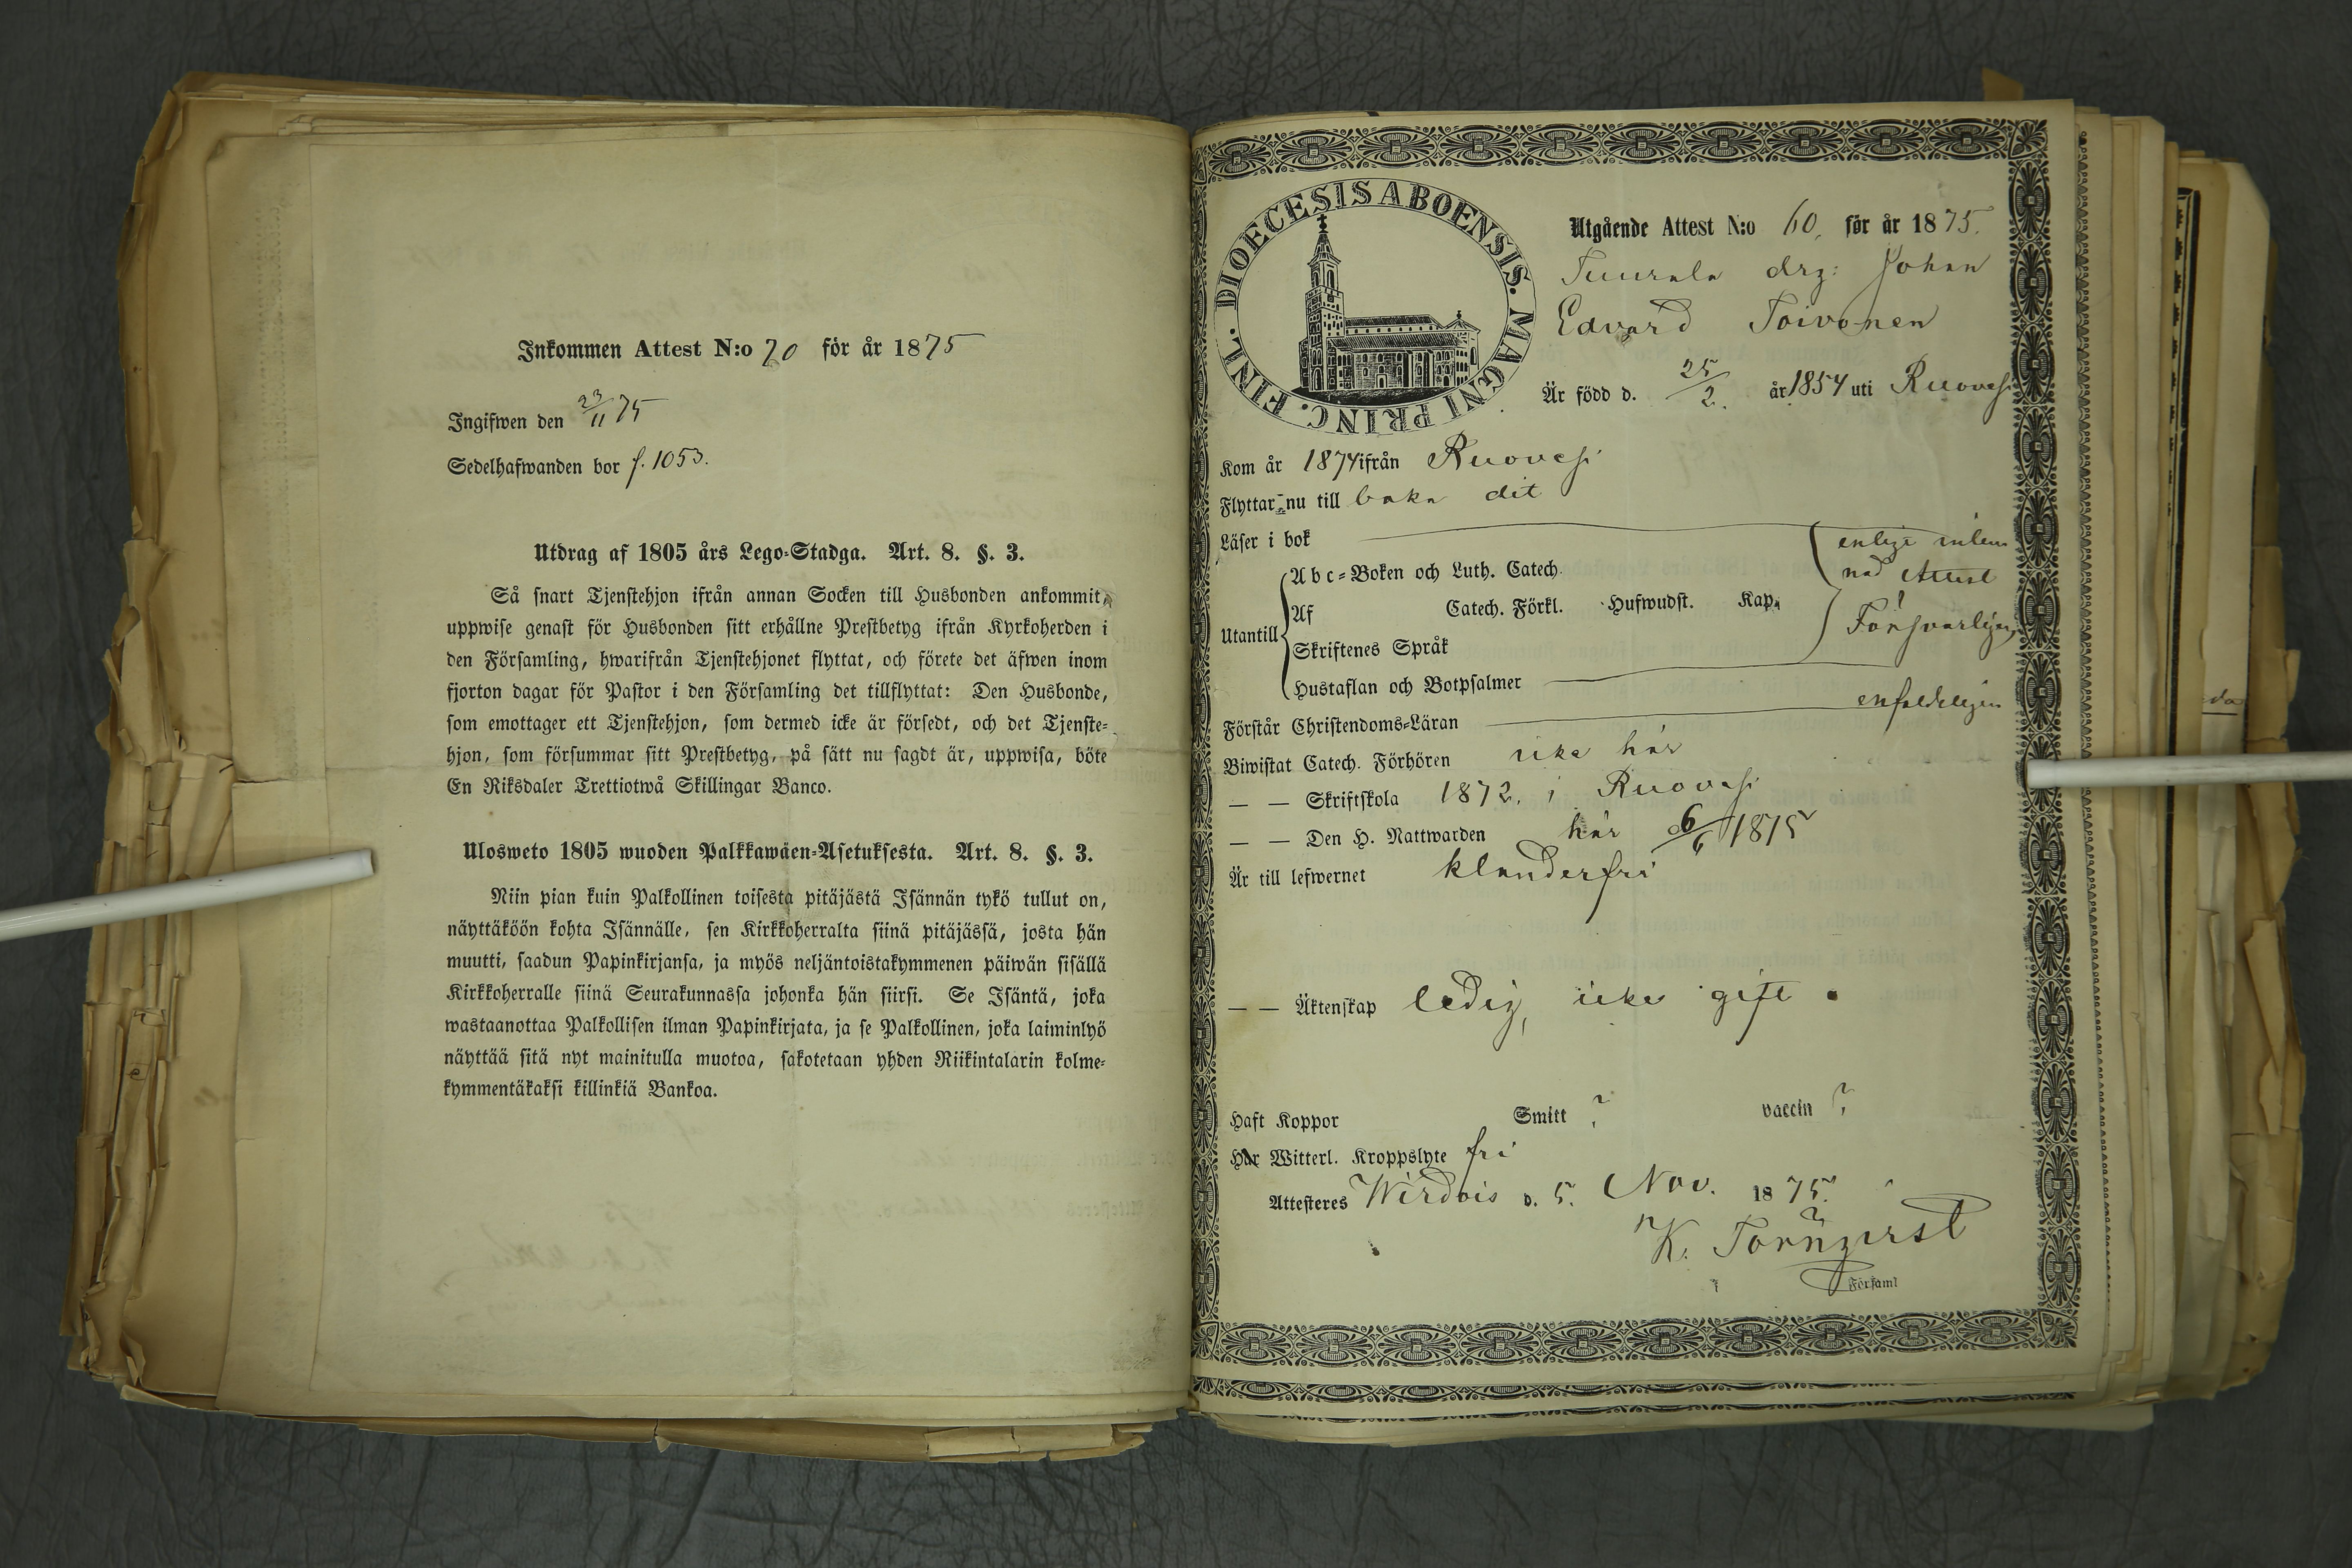 Inkommen Attest N:o 70 för år 1875
Ingifwen den 23/11 75
Sedelhafwanden bor f. 1053.
Utdrag af 1805 års Lego-Stadga. Art. 8. §. 3.
Så snart Tjenstehjon ifrån annan Socken till Husbonden ankommit,
uppwise genast för Husbonden sitt erhållne Prestbetyg ifrån Kyrkoherden i
den Församling, hwarifrån Tjenstehjonet flyttat, och förete det äfwen inom
fjorton dagar för Pastor i den Församling det tillflyttat: Den Husbonde,
som emottager ett Tjenstehjon, som dermed icke är försedt, och det Tjenste-
hjon, som försummar sitt Prestbetyg, på sätt nu sagdt är, uppwisa, böte
En Riksdaler Trettiotwå Skillingar Banco.
Ulosweto 1805 wuoden Palkkawäen-Asetuksesta. Art. 8. §. 3.
Niin pian kuin Palkollinen toisesta pitäjästä Isännän tykö tullut on,
näyttäköön kohta Isännälle, sen Kirkkoherralta siinä pitäjässä, josta hän
muutti, saadun Papinkirjansa, ja myös neljäntoistakymmenen päiwän sisällä
Kirkkoherralle siinä Seurakunnassa johonka hän siirsi. Se Isäntä, joka
wastaanottaa Palkollisen ilman Papinkirjata, ja se Palkollinen, joka laiminlyö
näyttää sitä nyt mainitulla muotoa, sakotetaan yhden Riikintalarin kolme-
kymmentäkaksi killinkiä Bankoa.
DIOECESIS ABOENSIS. MAGNI PRINC. FINL.
Utgående Attest N:o 60. för år 1875.
drg: Johan
Edvard Toivonen
Är född d. 25/2. år 1854 uti Ruovesi
Kom år 1874 ifrån Ruovesi
Flyttar nu till baka dit
Läser i bok
enligt inlem
nad Attest
Utantill
Abc-Boken och Luth. Catech.
Af Catech. Förkl. Hufwudst. Kap.
Försvarligen
Skriftenes Språk
Hustaflan och Botpsalmer
Förstår Christendoms-Läran enfaldeligen
Biwistat Catech. Förhören icke här
— — Skriftskola 1872. i Ruovesi
— — Den H. Nattwarden här 6/6 1875
Är till lefwernet klanderfri
— — Äktenskap ledig, icke gift.
Haft Koppor Smitt ? vaccin ?
Har Witterl. Kroppslyte fri
Attesteres Wirdois d. 5. Nov. 1875.
K. Törnqvist
Församl